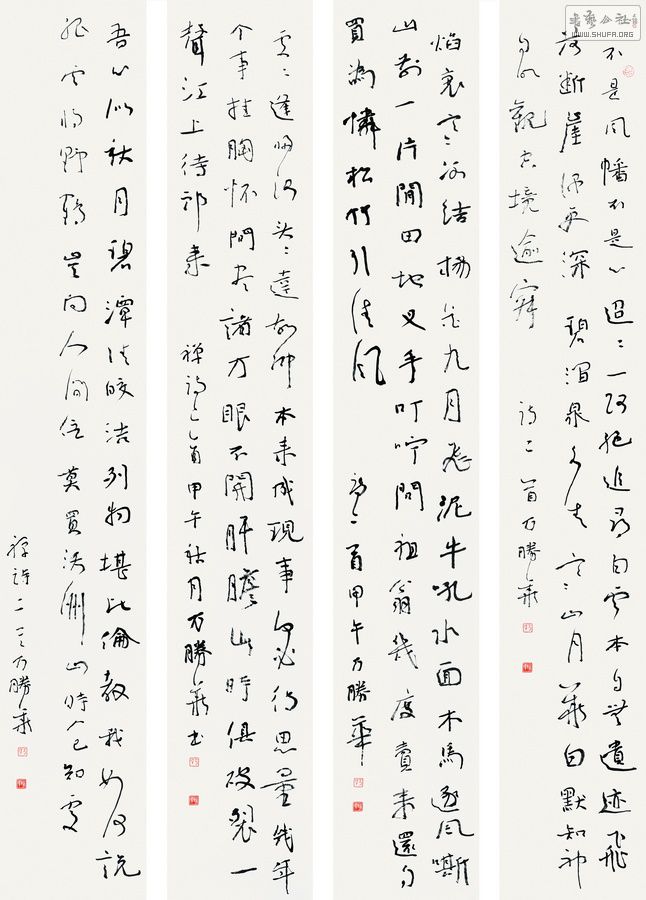 不是風幡不是心迢迢一路絕追尋白雲本自無遺迹飛
落斷崖深更深碧澗泉水清寒山月華白默知神
自明觀空境逾寂 詩二首万勝華
焰裏寒冰結楊花九月飛泥牛吼水面木馬逐風嘶
山前一片閒田地叉手叮嚀問祖翁幾度賣來還自
買為憐松竹引清風 詩二首甲午万勝華
處處逢歸路頭頭達故鄉本來成現事何必待思量幾年
个事挂胸懷問盡諸方眼不開肝膽此時俱破裂一
聲江上待郎來 禪詩之二首甲午秋月万勝華書
吾心似秋月碧潭清皎洁無物堪比倫教我如何説
孤雲將野鶴豈向人間住莫買沃洲山時人已知處
禪詩二首万勝華
WWW.SHUFA.ORG